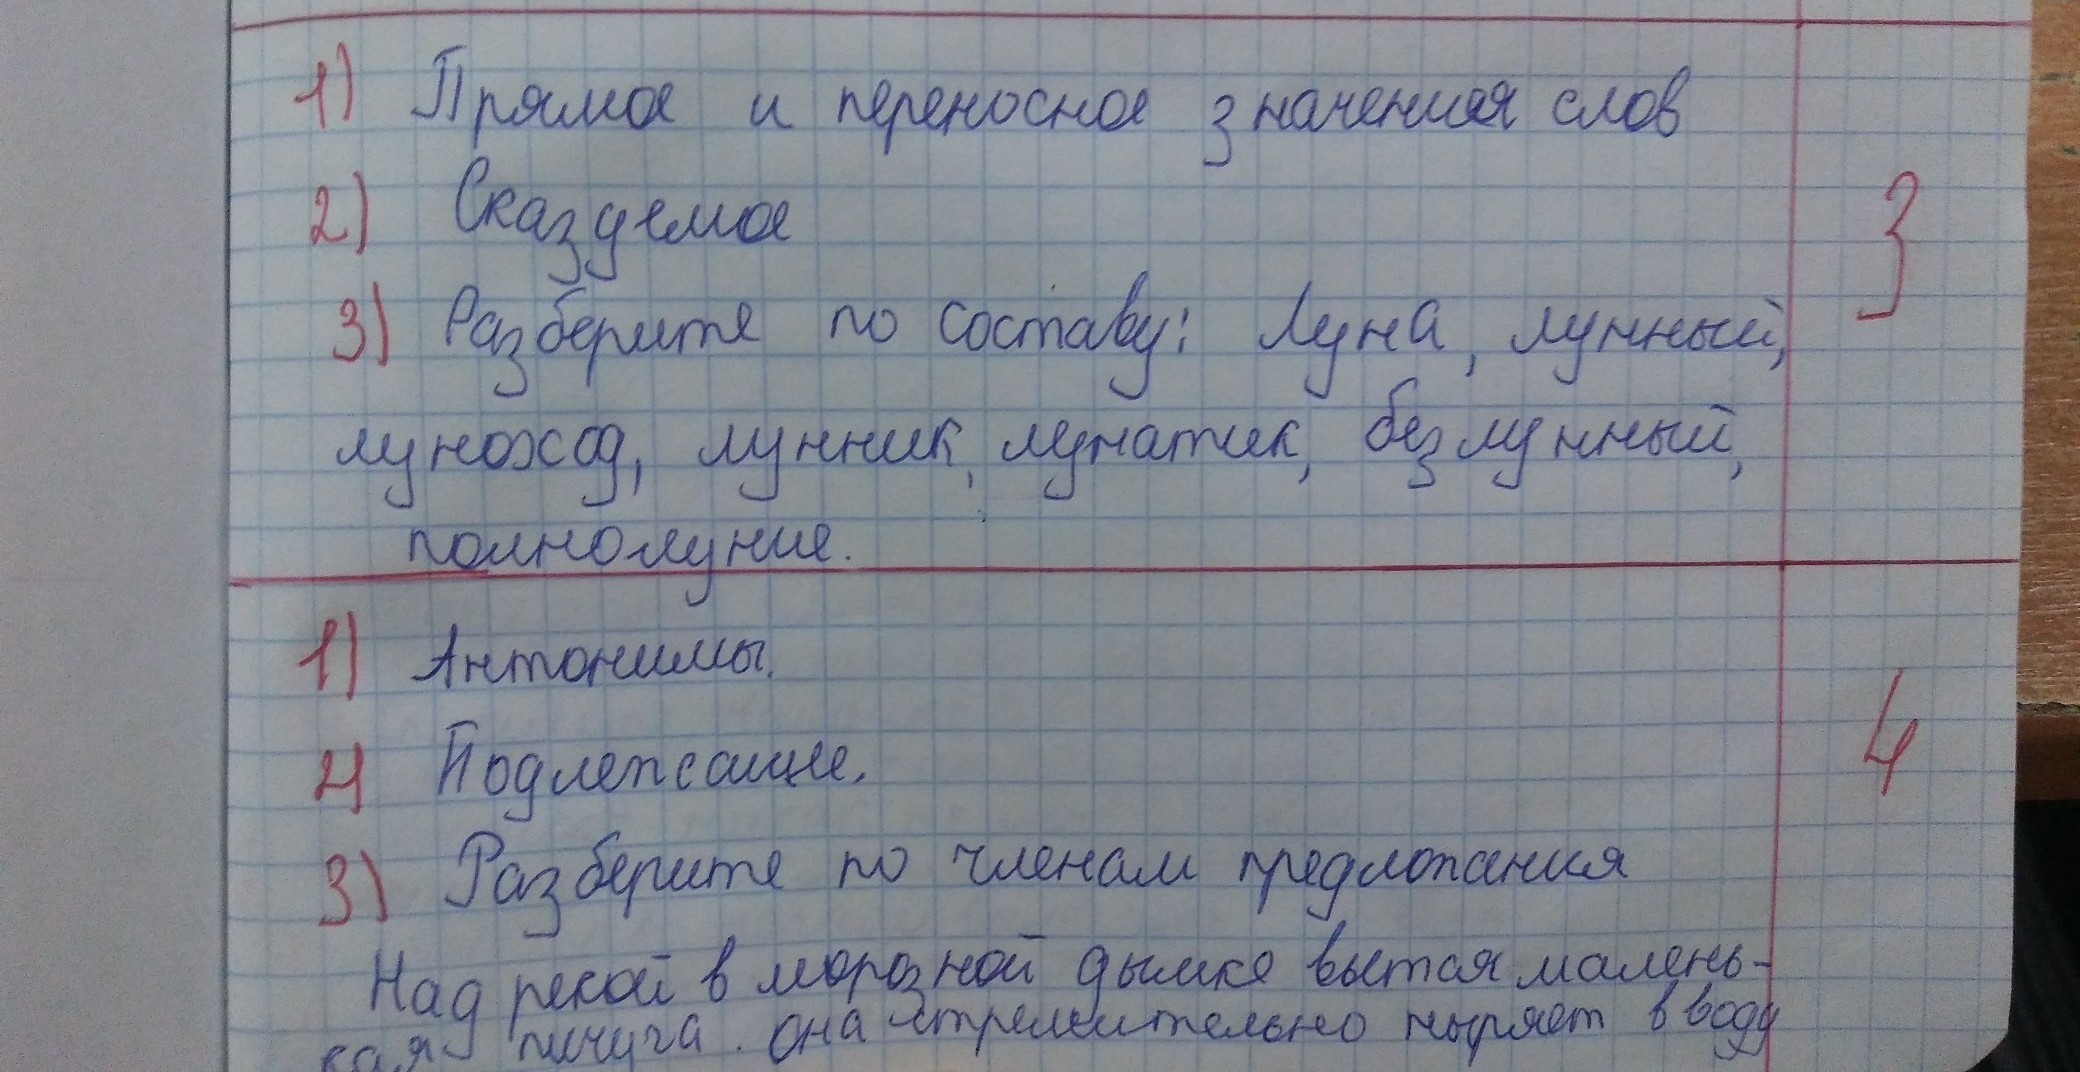 1) Прямое и переносное значения слов
2) Сказуемое
3
3) Разберите по составу: Луна, лунный,
луноход, лунник, лунатик, безлунный,
полнолуние.
1) Антонимы.
2) Подлежащее.
4
3) Разберите по членам предложения
Над рекой в морозной дымке вьется малень-
кая пичуга. Она стремительно ныряет в воду